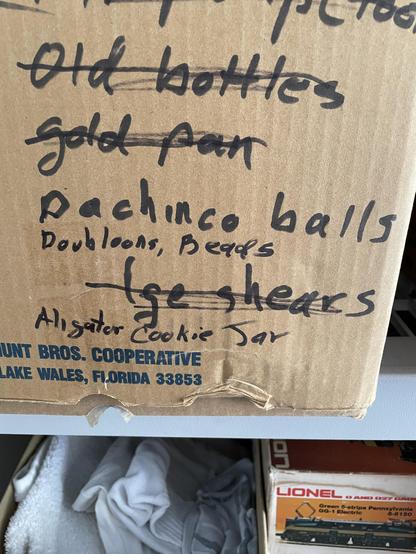 Old bottles
gold pan
Pachinco balls
Doubloons, Beads
Lge shears
Aligator Cookie Jar
HUNT BROS. COOPERATIVE
LAKE WALES, FLORIDA 33853
LIONEL O AND O27 GAUGE
Green 5-stripe Pennsylvania
GG-1 Electric 6-8150